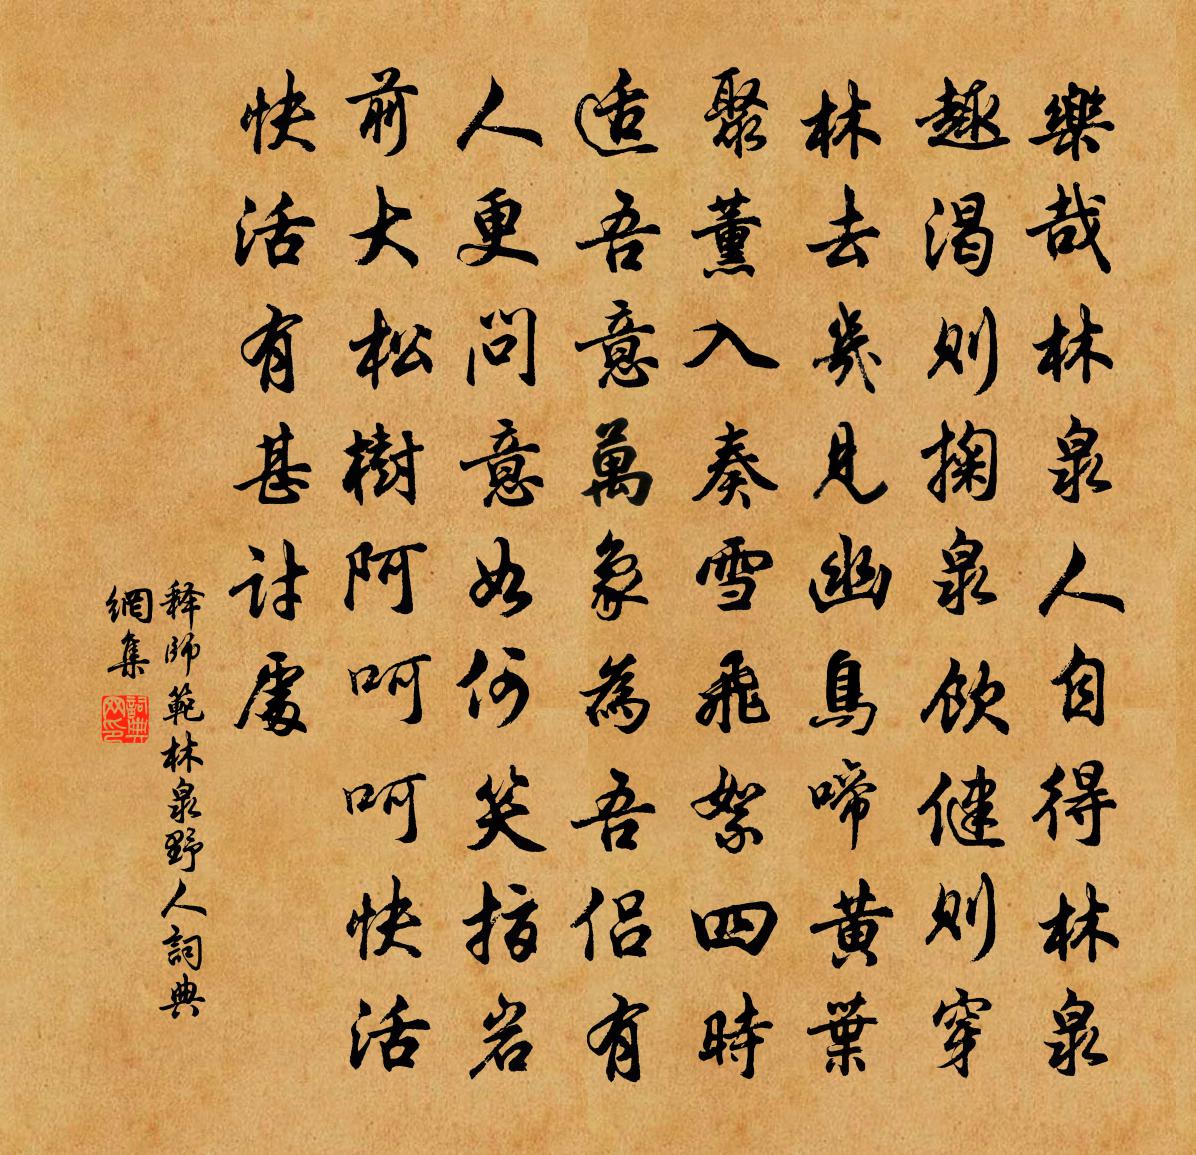 樂哉林泉人自得林泉
趣渴則掬泉飲健則穿
林去幾見幽鳥啼黃葉
聚薰入奏雪飛絮四時
适吾意萬象為吾侶有
人更問意如何笑指岩
前大松樹阿呵呵快活
快活有甚討處
释師範林泉野人詞典
網集
詞典
网印